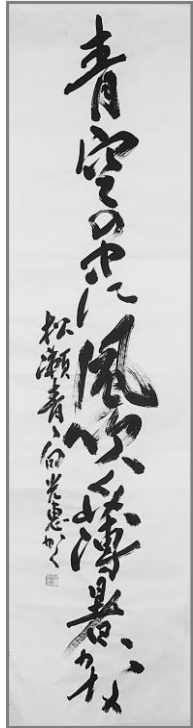 青空の中に風吹く薄暑かな
松瀬青々句 光恵かく